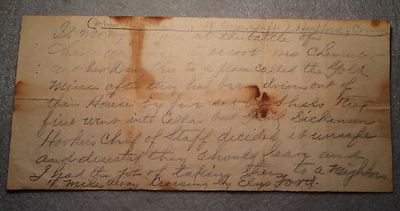 It was my at the battle of
to escort Mrs Chancellor
and her daughters to a place called the Gold
Mine after they had been driven out of
their House by fire set by shells They
first went into Cellar but Dickinson
Hookers Chief of Staff decided it unsafe
and directed they should leave and
I had the job of taking them to a Neighbors
miles away crossing by Elys Ford.